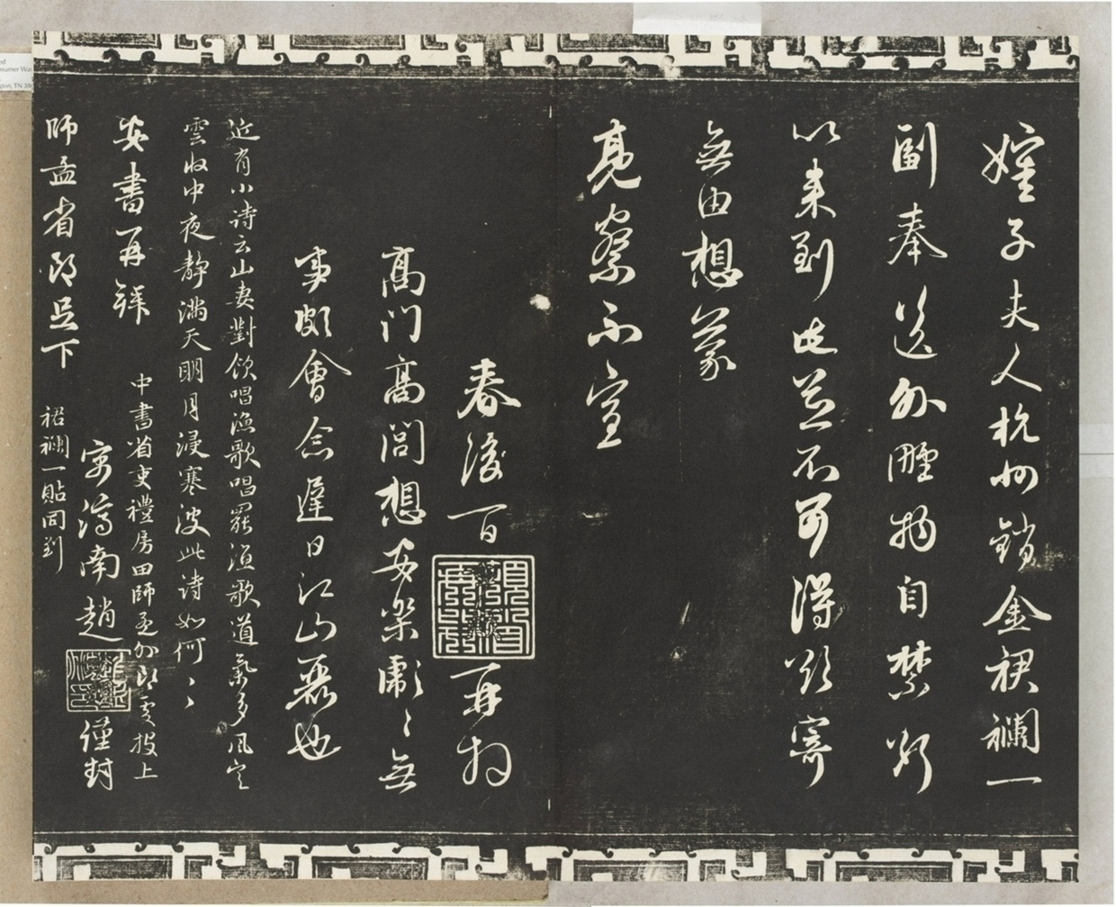 嬸子夫人杭州銷金裙襴一
副奉送外酒物自禁
以來到此並不可得
無由想蒙
亮察不宣
春後一百
再拜
高門高閭想安樂
無
事頗會念遲日江山麗也
近有小詩云山妻對飲唱漁歌唱罷漁歌道氣多風定
雲收中夜靜滿天明月浸寒波此詩如何
安書再拜
中書省吏禮房田師孟外郎
投上
濟南趙
謹封
師孟省郎足下
裙襴一貼同到